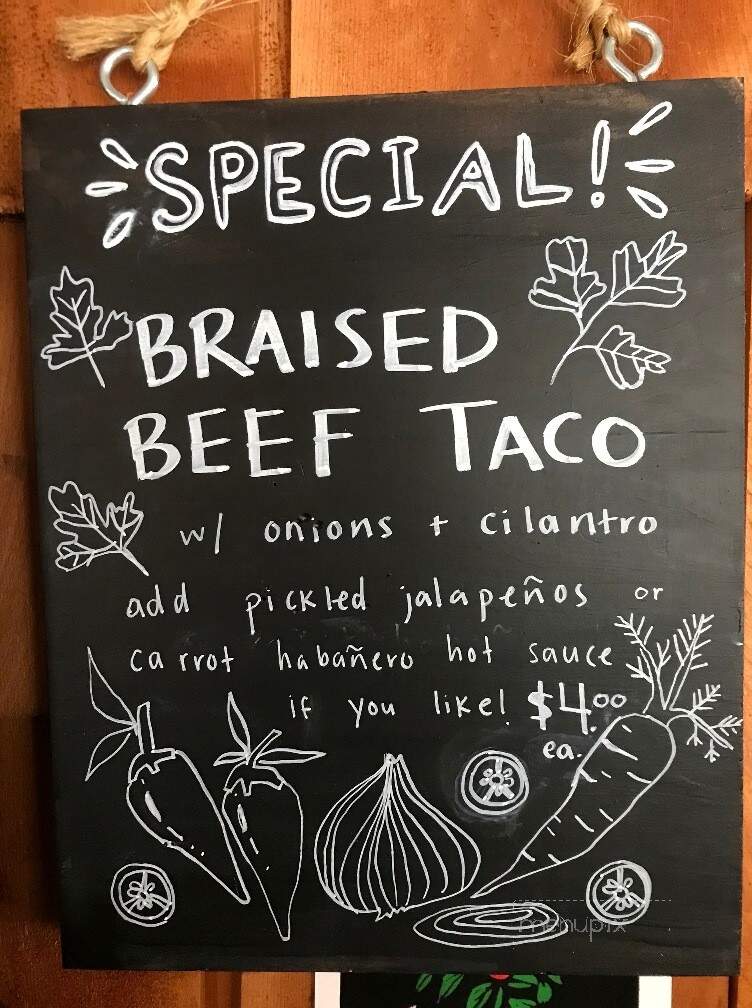 SPECIAL!
BRAISED
BEEF TACO
w/ onions + cilantro
add pickled jalapeños or
carrot habañero hot sauce
if you like! $4.00
ea.
menupix